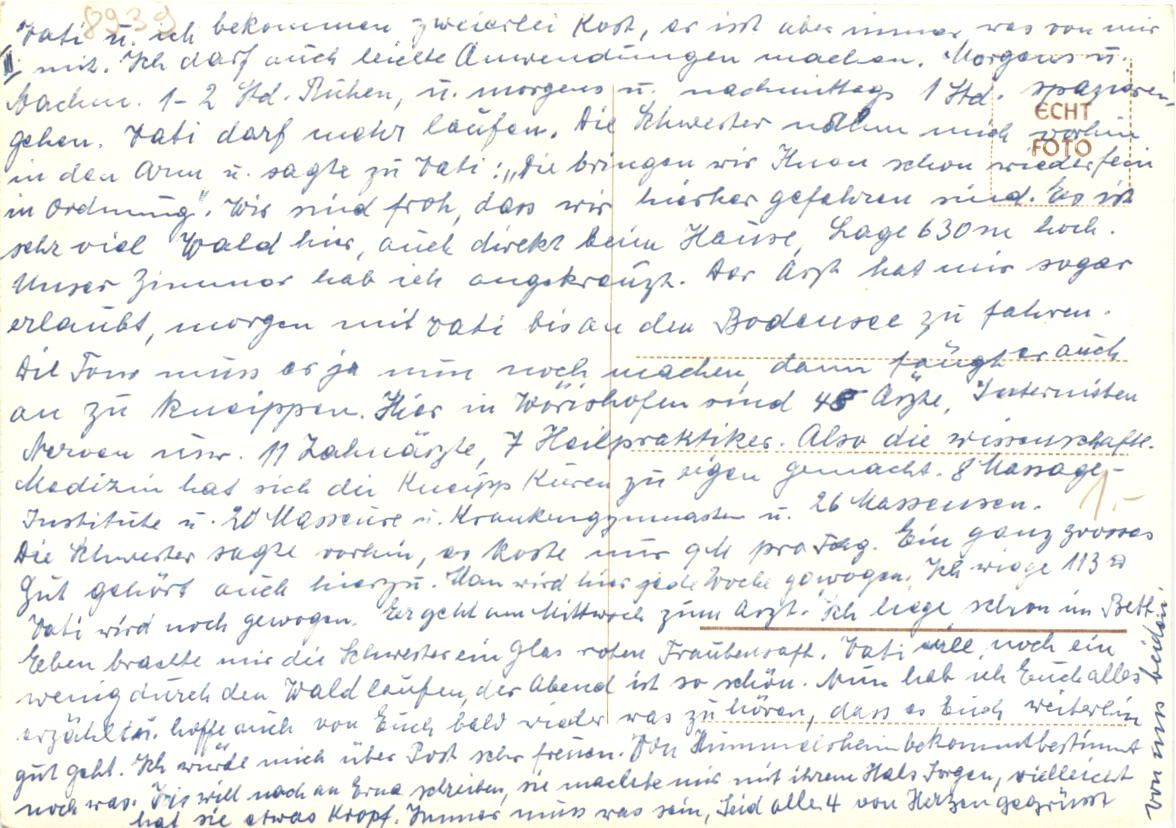 8939
Vati u. ich bekommen zweierlei Kost, er isst aber immer was von mir
II mit. Ich darf auch leichte Anwendungen machen. Morgens u.
Nachm. 1-2 Std. Ruhen, u. morgens u. nachmittags 1 Std. spazieren
gehen. Vati darf mehr laufen. Die Schwester nahm mich vorhin
ECHT
FOTO
in den Arm u. sagte zu Vati: „Die bringen wir Ihnen schon wieder fein
in Ordnung". Wir sind froh, dass wir hierher gefahren sind. Es ist
sehr viel Wald hier, auch direkt beim Hause, Lage 630 m hoch.
Unser Zimmer hab ich angekreuzt. Der Arzt hat mir sogar
erlaubt, morgen mit Vati bis an den Bodensee zu fahren.
Die Tour muss er ja nun noch machen dann fängt er auch
an zu kneippen. Hier in Wörishofen sind 45 Ärzte, Internisten
Nerven usw. 11 Zahnärzte, 7 Heilpraktiker. Also die wissenschaftl.
Medizin hat sich die Kneipp Kuren zu eigen gemacht. 8 Massage-
1.-
Institute u. 20 Masseure u. Krankengymnasten u. 26 Masseusen.
Die Schwester sagte vorhin, es koste nur 9M pro Tag. Ein ganz grosses
Gut gehört auch hierzu. Man wird hier jede Woche gewogen. Ich wiege 113
Vati wird noch gewogen. Er geht am Mittwoch zum Arzt. Ich liege schon im Bett.
Eben brachte mir die Schwester ein Glas roten Traubensaft. Vati will noch ein
wenig durch den Wald laufen, der Abend ist so schön. Nun hab ich Euch alles
erzählt u. hoffe auch von Euch bald wieder was zu hören, dass es Euch weiterhin
gut geht. Ich würde mich über Post sehr freuen. Von Hummelsheim bekommt bestimmt
noch was. will noch an Erna schreiben, sie machte mir mit ihrem Hals Sorgen, vielleicht
hat sie etwas Kropf. Immer muss was sein, Seid alle 4 von Herzen gegrüsst
von uns beiden.